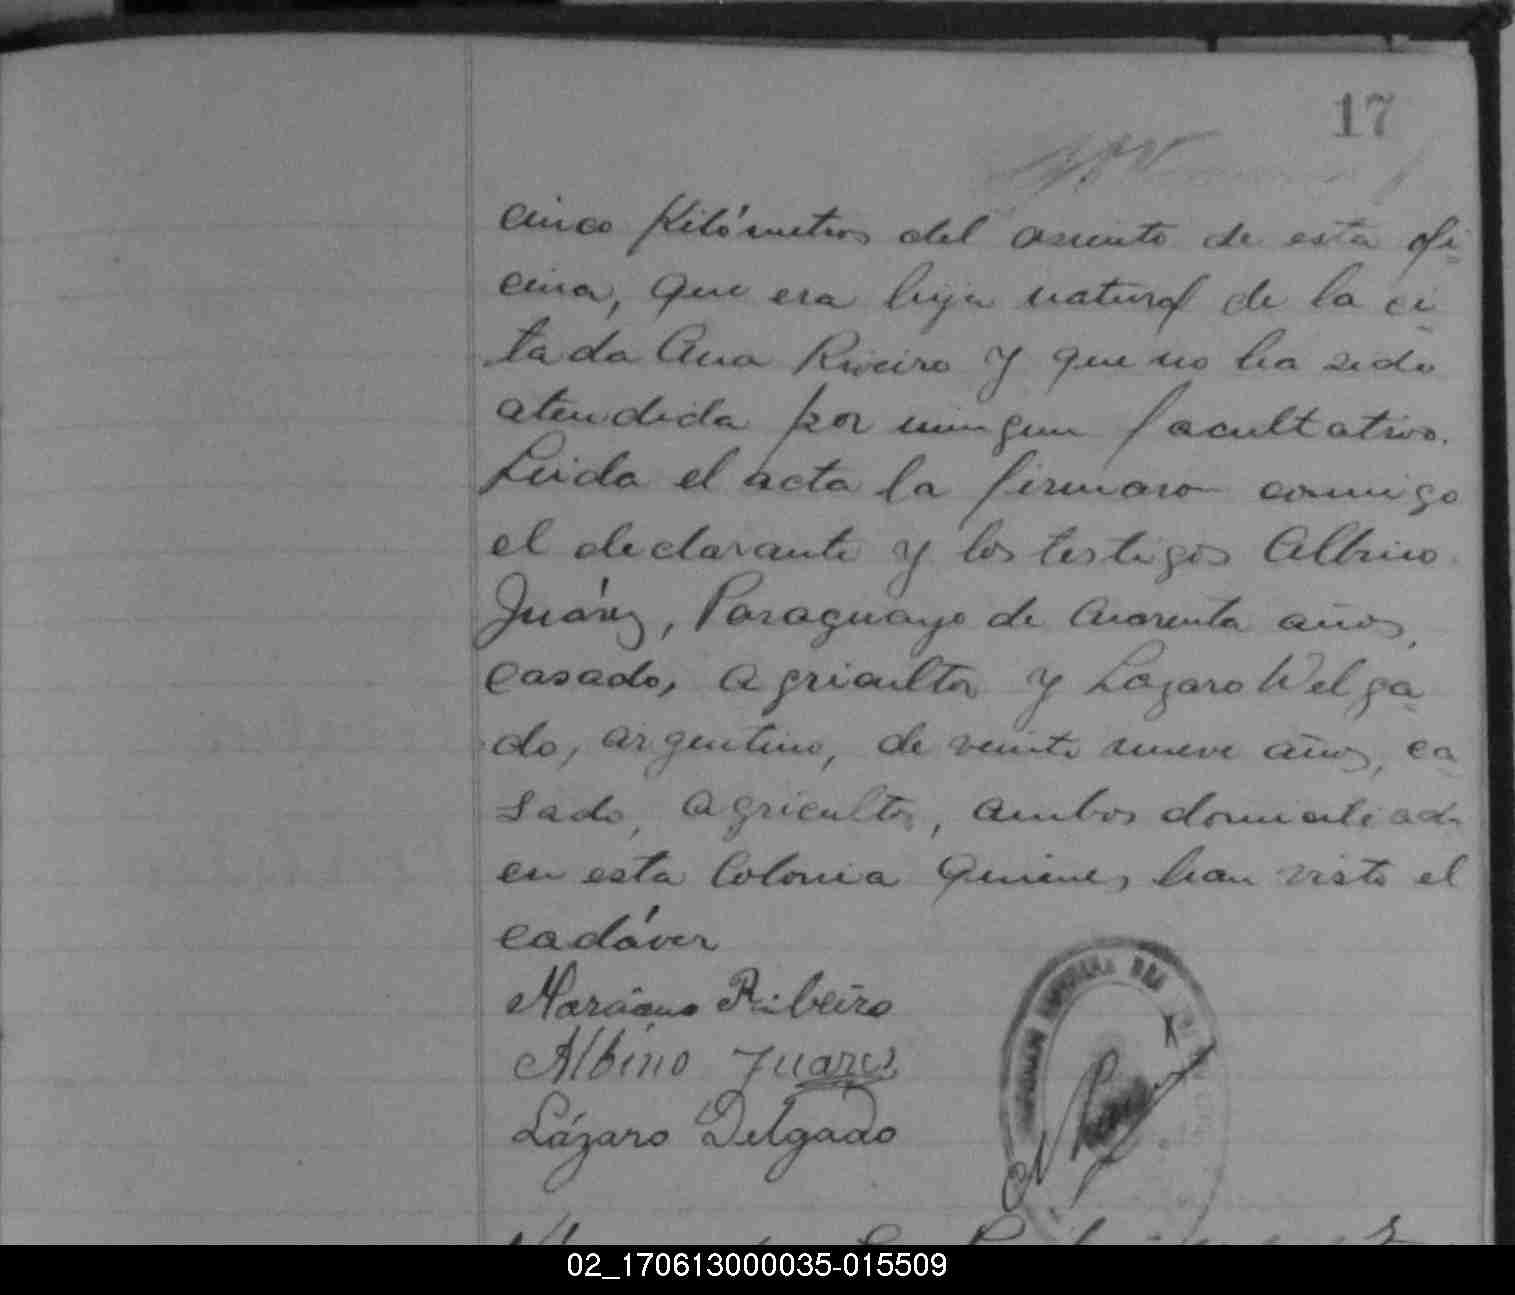 17
cinco Kilómetros del asiento de esta ofi
cina, que era hija natural de la ci
tada Ana Riveiro y que no ha sido
atendida por ningun facultativo.
Leida el acta la firmaron conmigo
el declarante y los testigos Albino
Juárez, Paraguayo de cuarenta años,
casado, agricultor y Lazaro Delga
do, argentino, de veinte nueve años, ca
sado, agricultor, ambos domiciliados
en esta Colonia quienes han visto el
cadáver
Marciano Ribeiro
Albino Juarez
Lázaro Delgado
02_170613000035-015509